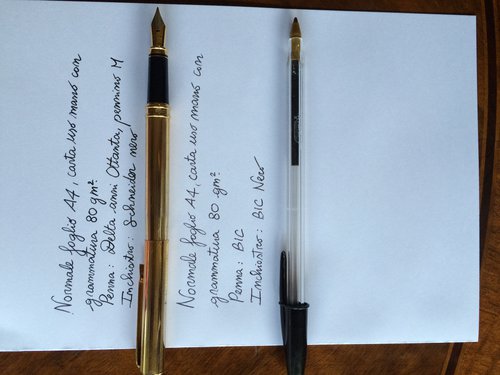 Normale foglio A4, carta uso mano con
grammatura 80 gm²
Penna: Delta anni Ottanta, pennino M
Inchiostro: Schneider nero
Normale foglio A4, carta uso mano con
grammatura 80 gm²
Penna: BIC
Inchiostro: BIC Nero